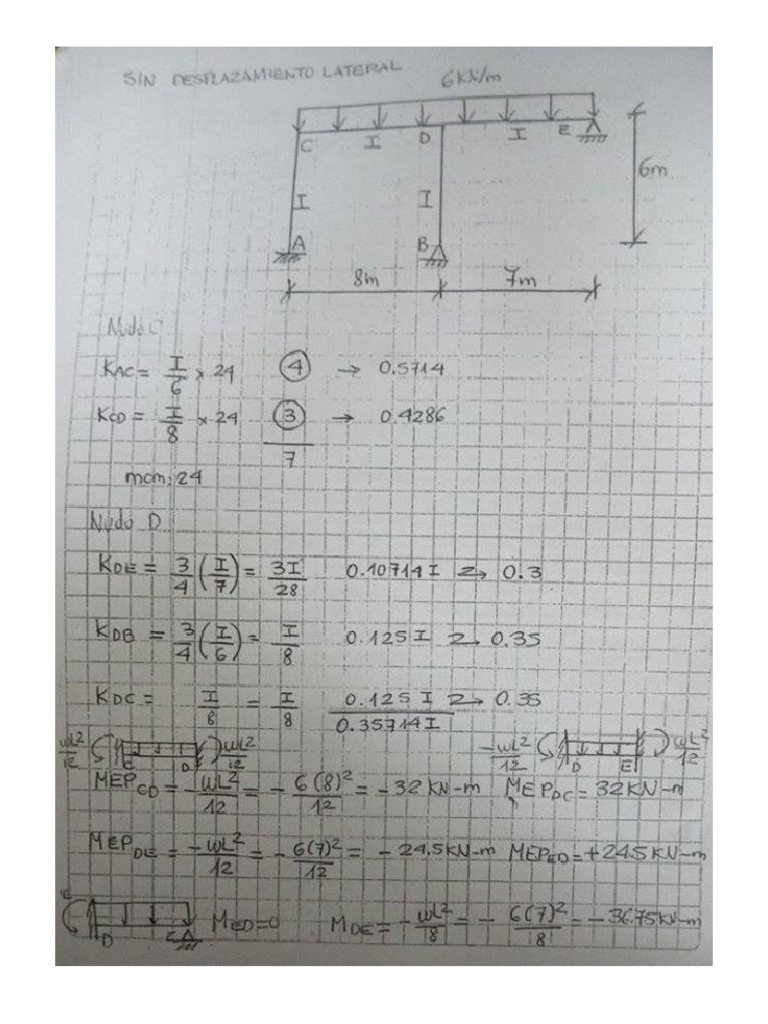 SIN DESPLAZAMIENTO LATERAL
6KN/m
C I D I E
6m
I I
A B
8m 7m
Nudo C
KAC = I/6 × 24 4 → 0.5714
KCD = I/8 × 24 3 → 0.4286
7
mcm: 24
Nudo D
KDE = 3/4 (I/7) = 3I/28 0.10714 I → 0.3
KDB = 3/4 (I/6) = I/8 0.125 I → 0.35
KDC = I/8 = I/8 0.125 I → 0.35
0.35714 I
wL²/12 C D wL²/12 -wL²/12 D E wL²/12
MEPCD = -wL²/12 = - 6(8)²/12 = -32 KN-m MEPDC = 32KN-m
MEPDE = -wL²/12 = - 6(7)²/12 = - 24.5KN-m MEPED = +24.5KN-m
D MED=0 MDE = - wL²/8 = - 6(7)²/8 = -36.75KN-m